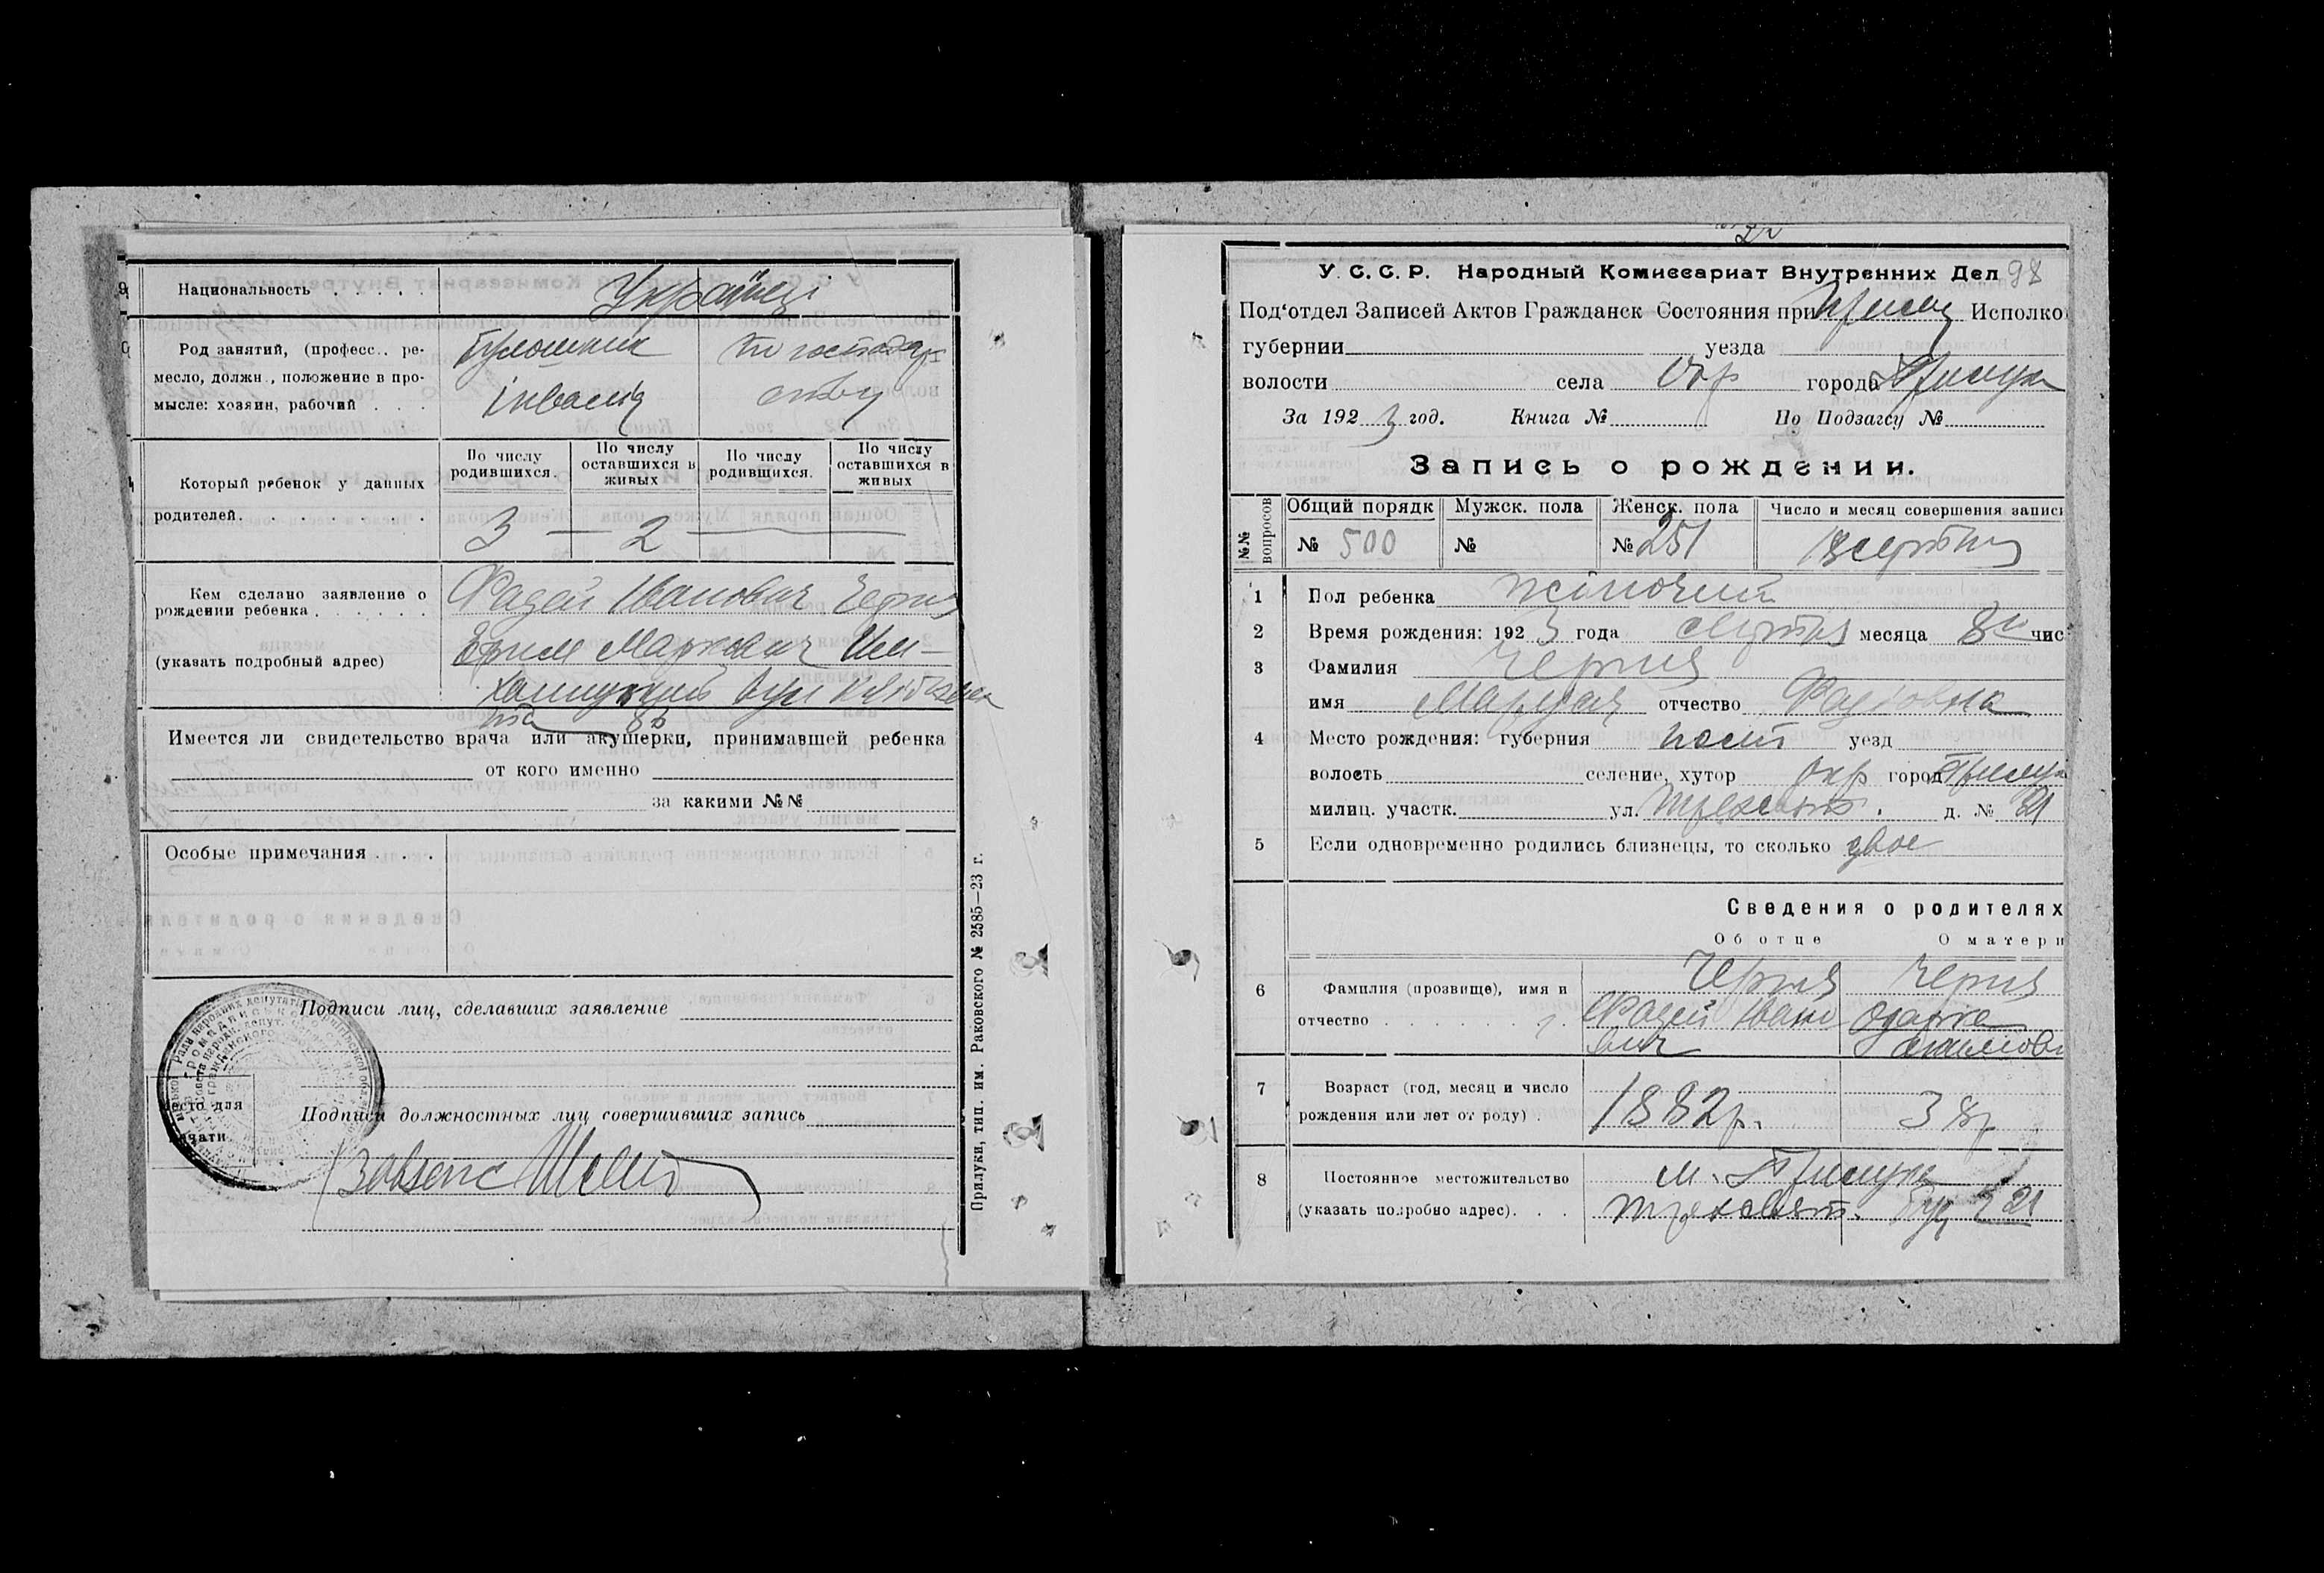 Национальность . . . . . Українці
Род занятий, (професс.. ре-
месло, должн., положение в про-
мысле: хозяин, рабочий . . .
булошник
інвалід
по господар
ству
По числу родившихся.
По числу оставшихся в живых
По числу родившихся.
По числу оставшихся в живых
Который ребенок у данных
родителей. . . . . . . .
3 — 2
Кем сделано заявление о
рождении ребенка . . . . . .
(указать подробный адрес)
Фадей Іванович Черня
Маркович
вул
85
Имеется ли свидетельство врача или акушерки, принимавшей ребенка
от кого именно
за какими №№
Особые примечания . . .
Подписи лиц, сделавших заявление
Место для
печати
Подписи должностных лиц совершивших запись
Прилуки, тип. им. Раковского № 2585—23 г.
У. С. С. Р. Народный Комиссариат Внутренних Дел 98
Под'отдел Записей Актов Гражданск Состояния при Исполко
губернии уезда
волости села Окр города Прилуки
За 1923 год. Книга № По Подзагсу №
Запись о рождении.
№№ вопросов
Общий порядк
Мужск. пола
Женск. пола
Число и месяц совершения записи
№ 500
№
№ 251
18 серпня
1 Пол ребенка жіночий
2 Время рождения: 1923 года серпня месяца 8 чис
3 Фамилия Черня
имя Маруся отчество Фадіовна
4 Место рождения: губерния Полт уезд
волость селение, хутор Окр город Прилуки
милиц. участк. ул. Трехсвят. д. № 21
5 Если одновременно родились близнецы, то сколько двое
Сведения о родителях
Об отце О матери
6 Фамилия (прозвище), имя и
отчество . . . . . . .
Черня
Фадей Івано
вич
Черня
Одарка
Якимовн
7 Возраст (год, месяц и число
рождения или лет от роду) .
1882р.
38р
8 Постоянное местожительство
(указать подробно адрес). . .
м. Прилуки
Трехсвят. вул 21